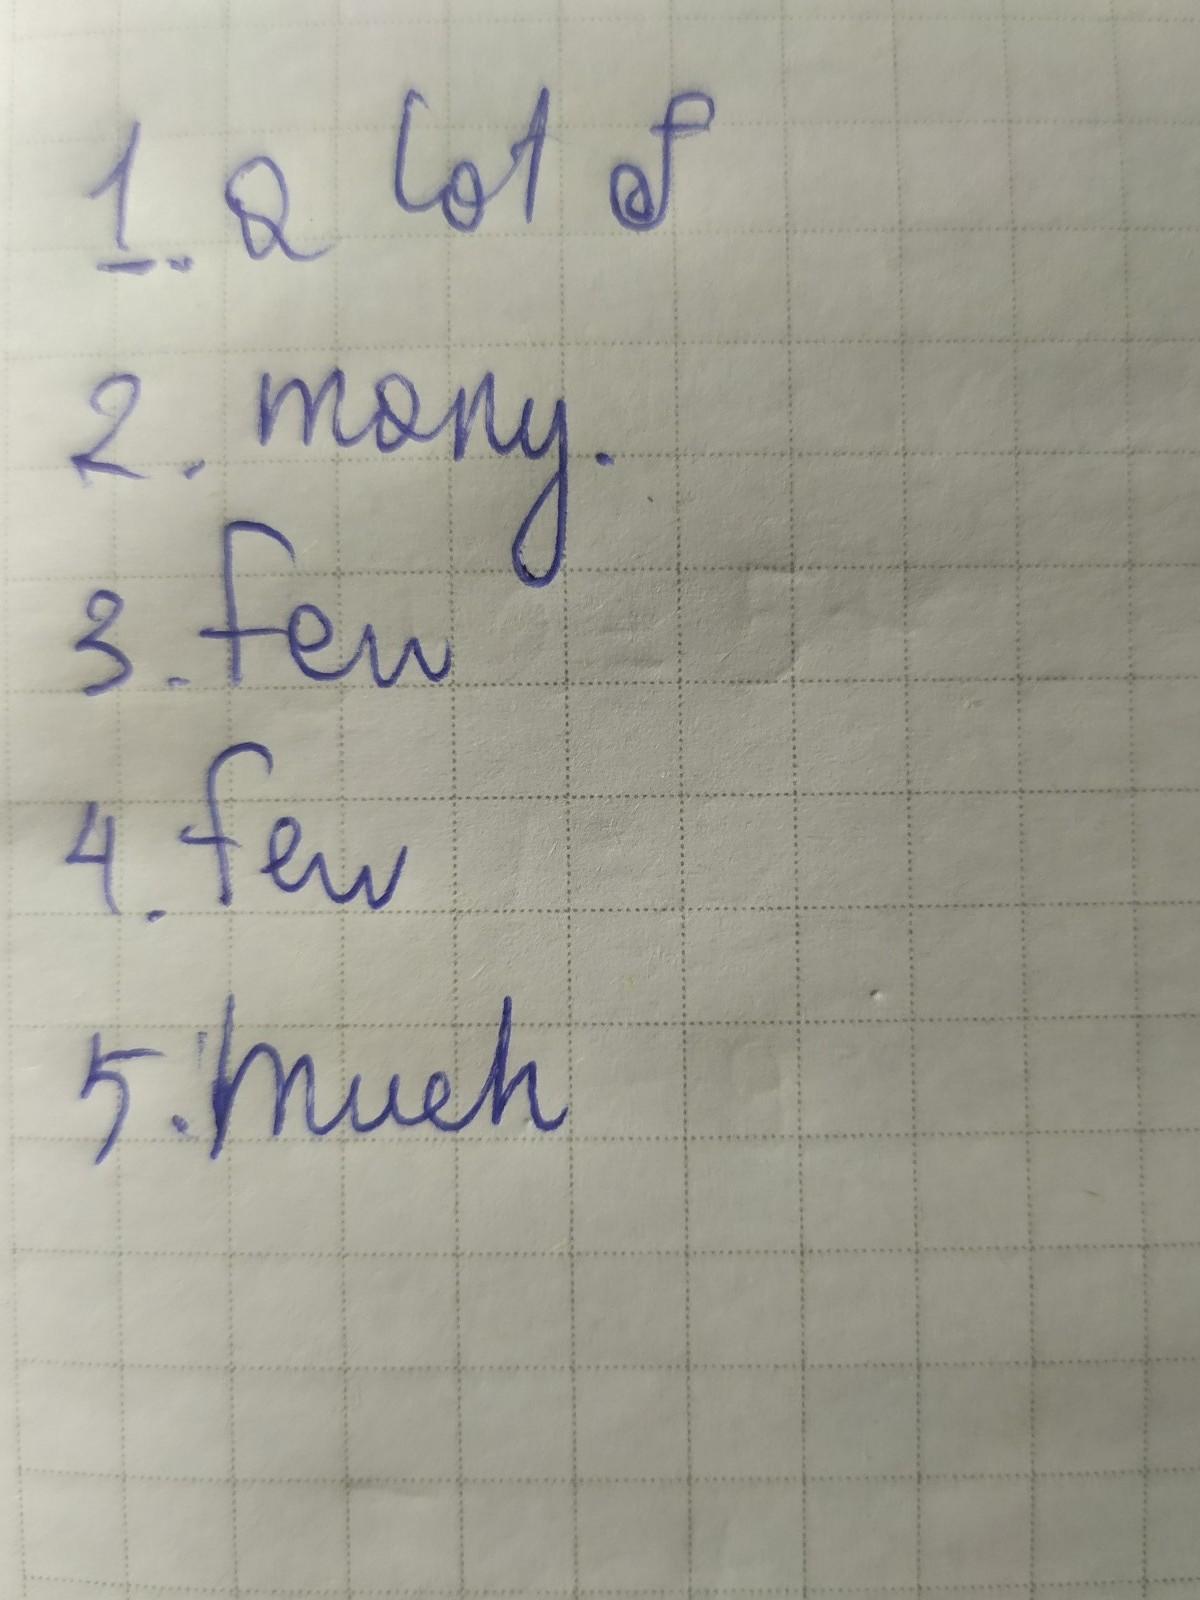 1. a lot of
2. many.
3. few
4. few
5. much